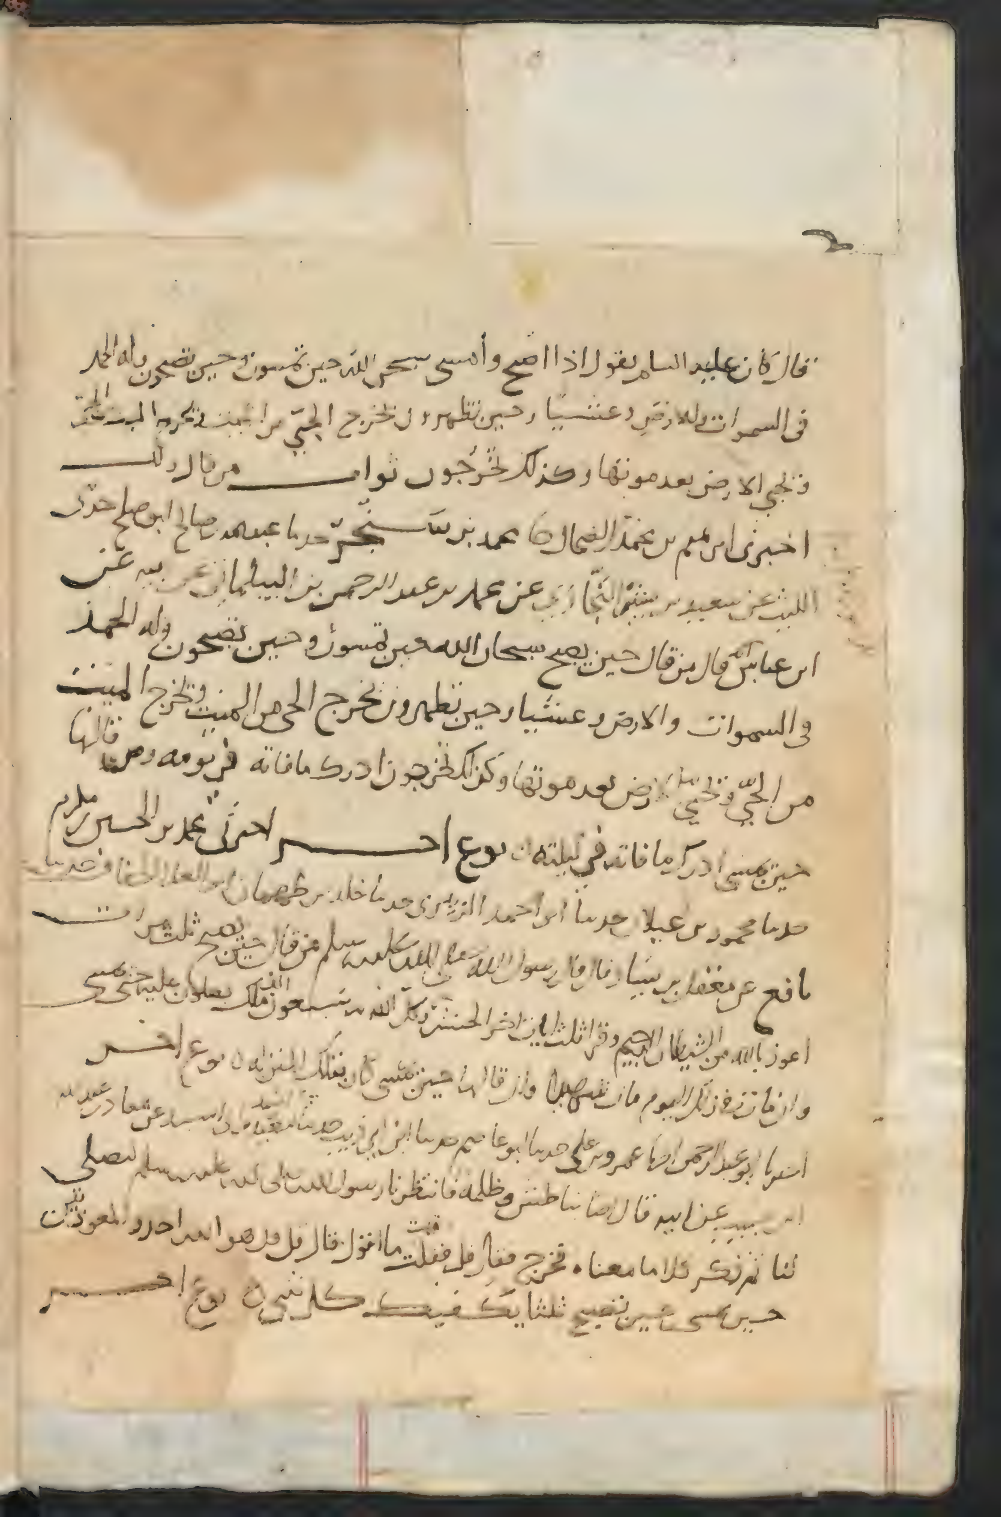 قال كان عليه السلم يقول اذا اصبح وأمسى سبحن الله حين تمسون وحين تصبحون وله الحمد
في السموات والارض وعشيا وحين تظهرون يخرج الحي من الميت ويخرج الميت من الحي
ويحيي الارض بعد موتها وكذلك تُخْرَجُون ثواب من قال ذلك
اخبرني ابرهيم بن محمد الضحاك محمد بن سنجر حدثنا عبد الله بن صالح ابو صالح حدثني
الليث عن سعيد بن بشير النجاري عن محمد بن عبد الرحمن بن البيلماني عن ابيه عن
ابن عباس قال من قال حين يصبح سبحان الله حين تمسون وحين تصبحون وله الحمد
في السموات والارض وعشيا وحين تظهرون يخرج الحي من الميت ويخرج الميت
من الحيّ ويحيي الارض بعد موتها وكذلك تخرجون ادرك ما فاته في يومه ومن قالها
حين يمسي ادرك ما فاته في ليلته نوع اخر اخبرني محمد بن الحسين بن مكرم
حدثنا محمود بن غيلان حدثنا ابو احمد الزبيري حدثنا خالد بن طهمان ابو العلا الخفاف حدثنا
نافع عن معقل بن يسار قال قال رسول الله صلى الله عليه وسلم من قال حين يصبح ثلث مرات
اعوذ بالله من الشيطان الرجيم وقرا ثلث ايات اخر الحشر وكل الله به سبعون الف ملك يصلون عليه حتى يمسي
وان مات في ذلك اليوم مات شهيدا وان قالها حين يمسي كان بتلك المنزله نوع اخر
اخبرنا ابو عبد الرحمن انبا عمرو بن علي حدثنا ابو عاصم حدثنا ابن ابي ذيب حدثنا اسيد بن ابي اسيد عن معاذ بن عبد الله
ابن خبيب عن ابيه قال اصابنا طش وظلمة فانتظرنا رسول الله صلى الله عليه وسلم ليصلي
لنا ثم ذكر كلاما معناه فخرج فقال قل فقلت ما اقول قال قل هو الله احد والمعوذتين
حين تمسي وحين تصبح ثلثا يكفيك كل شي نوع اخر